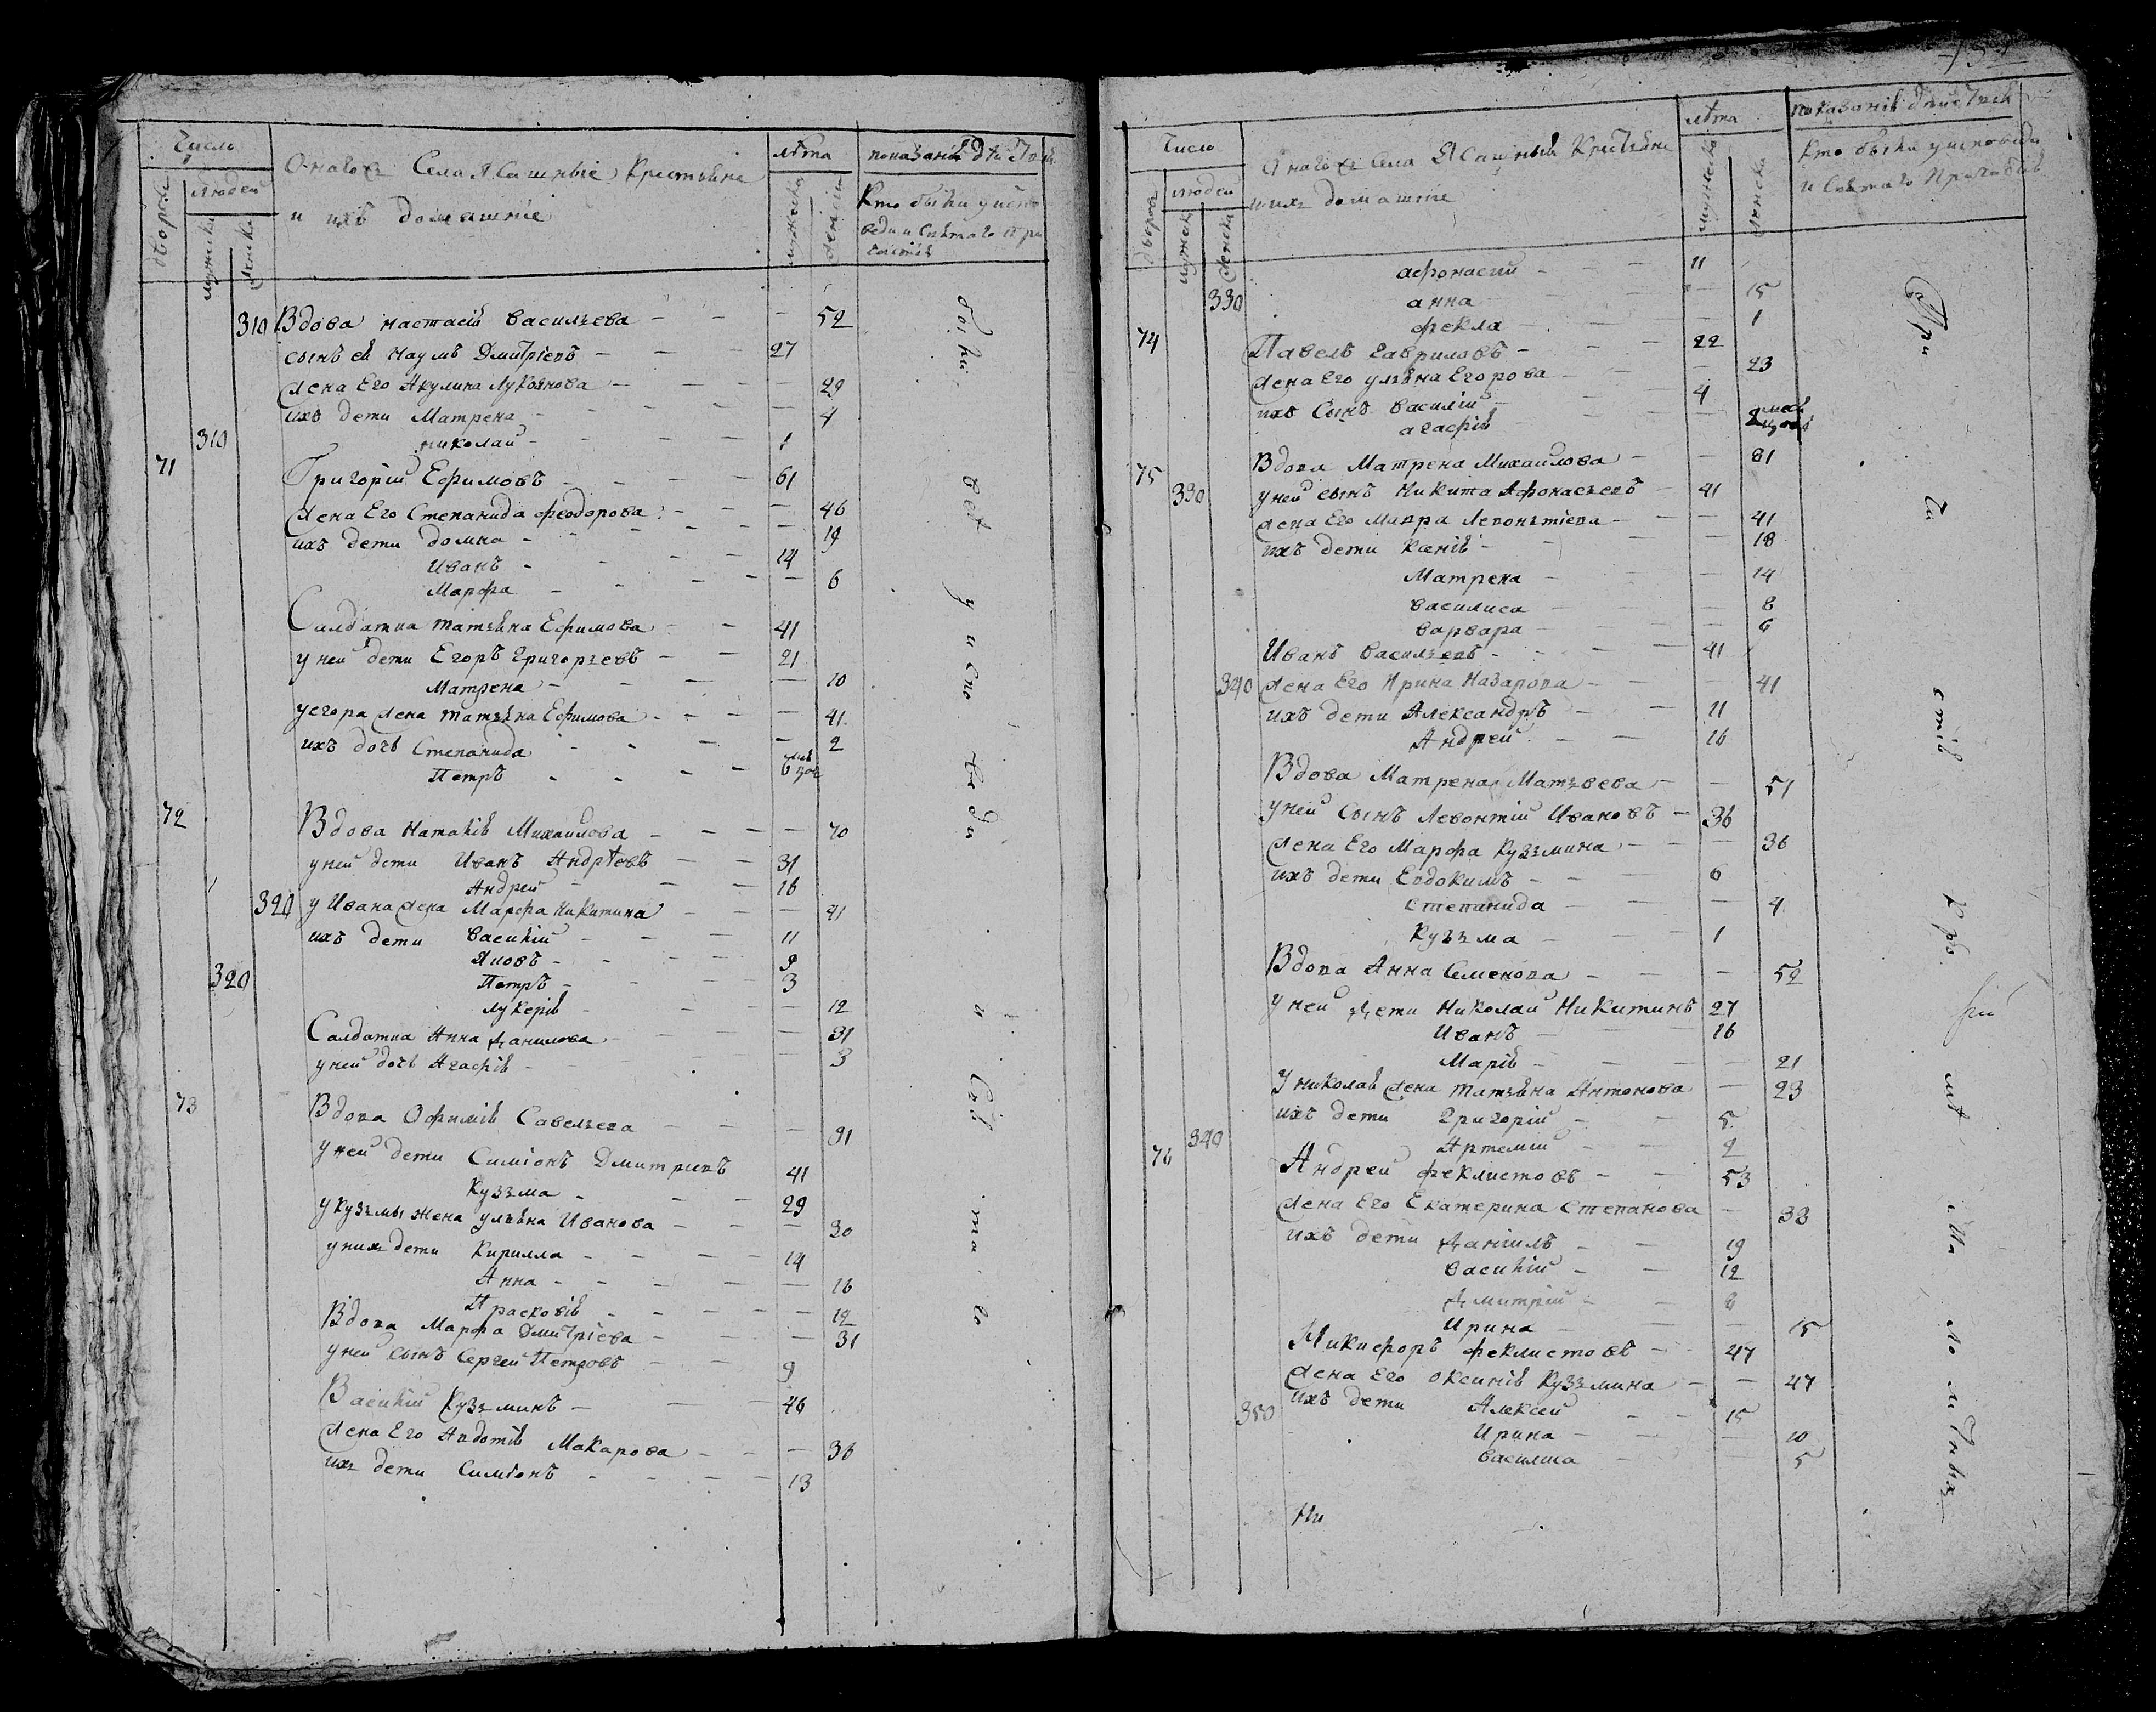 Число
Онагожъ Села Ясашные Крестьяне
лѣта
показаніе дѣйств
дворовъ
людей
и ихъ домашніе
мужеска
женска
Кто были у испо
веди и Святаго При
частія
мужеска
женска
310 Вдова настасія васильева - - - 52
сынъ ея Наумъ Дмитріевъ - - - 27
жена Его Акулина Лукоянова - - - 29
ихъ дети Матрена - - - 4
310 николай - - - 1
71 Григорій Ефимовъ - - - 61
жена Его Степанида феодорова - - - 46
ихъ дети домна - - - 19
Иванъ - - - 14
Марфа - - - 6
Салдатка татьяна Ефимова - - 41
у ней дети Егоръ григорьевъ - - 21
Матрена - - - 10
у егора жена татьяна Ефимова - - - 41
ихъ дочь Степанида - - - 2
Петръ - - - 6
72 Вдова Наталія Михаилова - - - 70
у ней дети Иванъ Андрѣевъ - - 31
Андрей - - - 16
320 у Ивана жена Марфа Никитина - - 41
ихъ дети василій - - - 11
Яковъ - - - 9
320 Петръ - - - 3
лукерія - - - 12
Салдатка Анна данилова - - - 31
у ней дочь Агафія - - - 3
73 Вдова Офимія Савельева - - - 91
у ней дети Симіонъ Дмитріевъ 41
Кузьма - - - 29
у кузьмы жена ульяна Иванова - - - 30
у нихъ дети Кирилла - - - 14
Анна - - - 16
Прасковія - - - 12
Вдова Марфа Дмитріева - - - 31
у ней сынъ Сергей Петровъ - - 9
Василій Кузьминъ - - - 46
жена Его Авдотія Макарова - - - 36
ихъ дети Симіонъ - - - 13
были
все
у и спо
ве ди
и
Свя
та
го
Число
Онагожъ села Ясашные Крестьяне
лѣта
показаніе дѣйств
дворовъ
людей
и ихъ домашніе
мужеска
женска
Кто были у исповеди
и Святаго Причастія
мужеска
женска
афонасій - - - 11
330 анна - - - 15
фекла - - - 1
74 Павелъ гавриловъ - - - 22
жена Его ульяна Егорова - - - 23
ихъ Сынъ василій - - - 4
агафія
75 Вдова Матрена Михаилова - - 81
330 у ней сынъ Никита Афонасьевъ - 41
жена Его Мавра Левонтіева - - - 41
ихъ дети ксенія - - - 18
Матрена - - - 14
василиса - - - 8
варвара - - - 6
Иванъ васильевъ - - - 41
340 жена Его Ирина Назарова - - - 41
ихъ дети Александръ - - 11
Андрей - - 16
Вдова Матрена Матвеева - - 51
у ней Сынъ Левонтій Ивановъ - 36
жена Его Марфа Кузьмина - - - 36
ихъ дети Евдокимъ - - - 6
степанида - - - 4
Кузьма - - - 1
Вдова Анна Семенова - - - 52
у ней дети Николай Никитинъ 27
Иванъ - - 16
Марія - - - 21
У николая жена татьяна Антонова - 23
ихъ дети григорій - - 5
340 Артемій - - 2
76 Андрей феклистовъ - - 53
жена Его Екатерина степанова - 38
ихъ дети данилъ - - 19
василій - - 12
дмитрій - - 8
Ирина - - 15
Никифоръ феклистовъ - - 47
жена Его оксинія Кузьмина - - 47
350 ихъ дети Алексей - - 15
Ирина - - - 10
василиса - - - 5
Ни
При
ча
стія
кро
мѣ
Ма
ло
лѣтныхъ